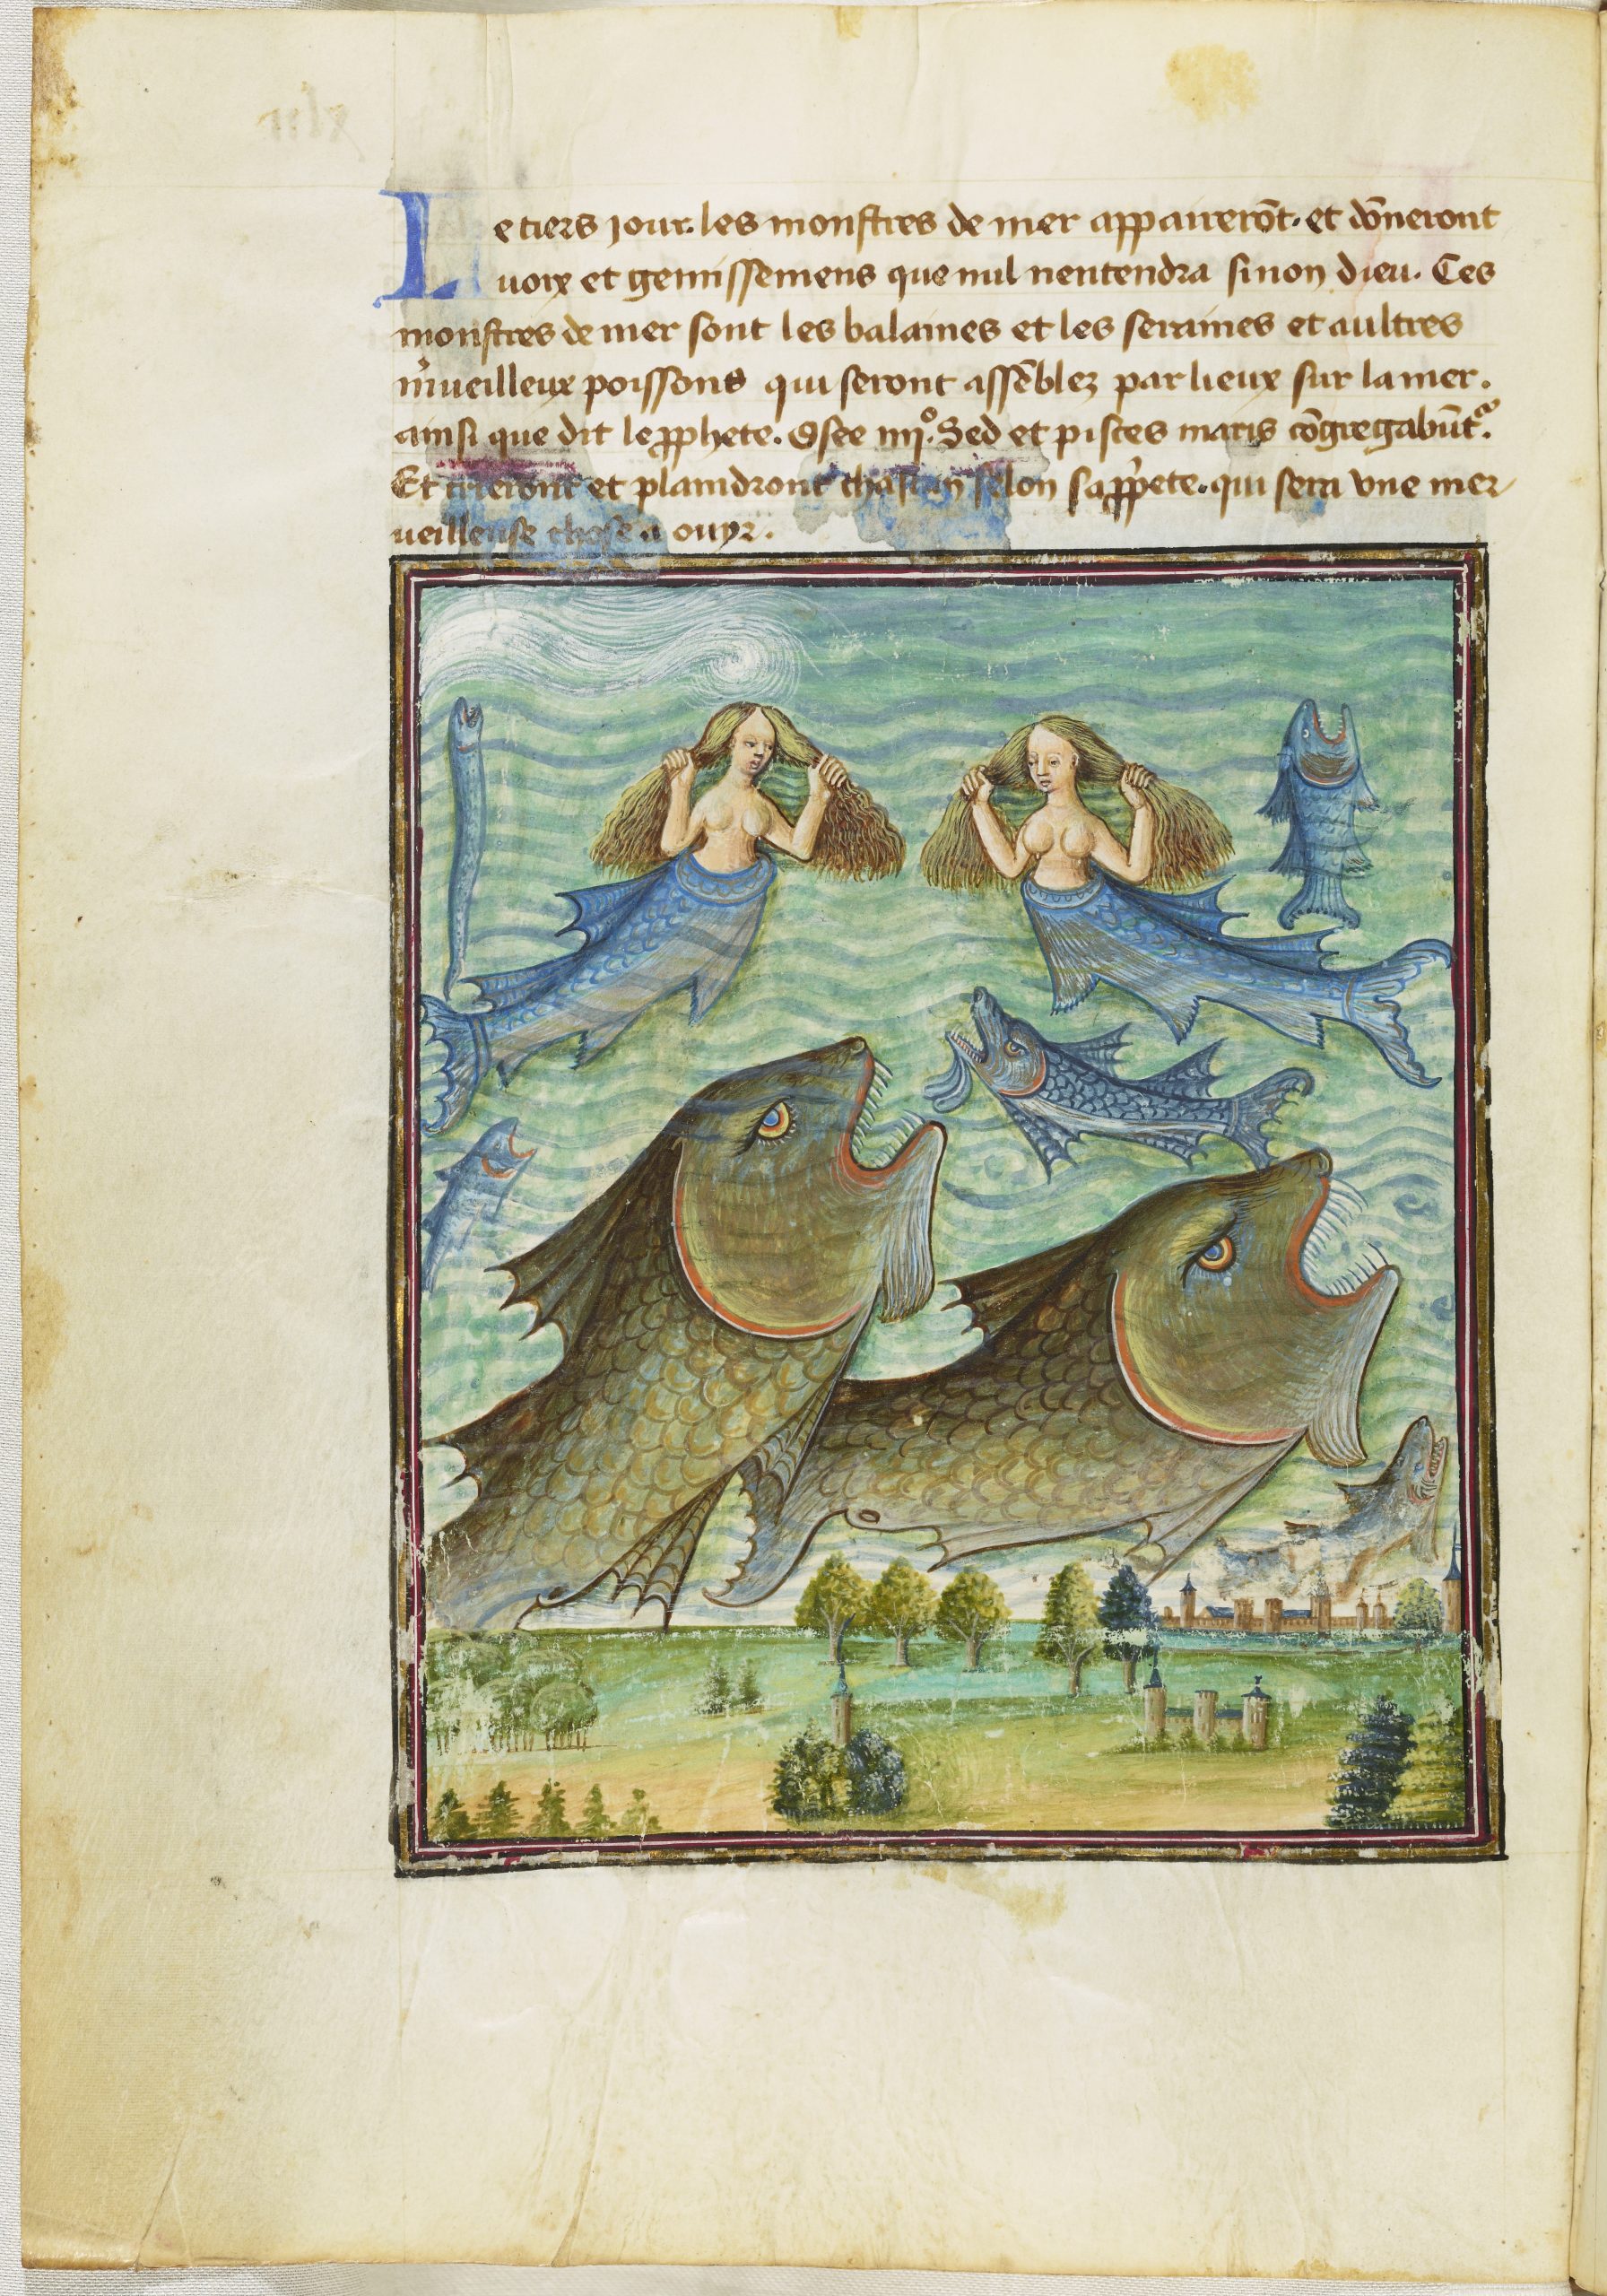 Le tiers jour. les monstres de mer appairerōt. et dōneront
voix et gemissemens que nul nentendra sinon dieu. Ces
monstres de mer sont les balaines et les seraines et aultres
m̉ueilleux poissons qui seront assēblez par lieux sur la mer.
ainsi que dit le pphete. Osee iiijº. Sed et pisces maris cōgregabūt̉.
Et crieront et plaindront chascun selon sa pp̉ete. qui sera vne mer
ueilleuse chose a ouyr.